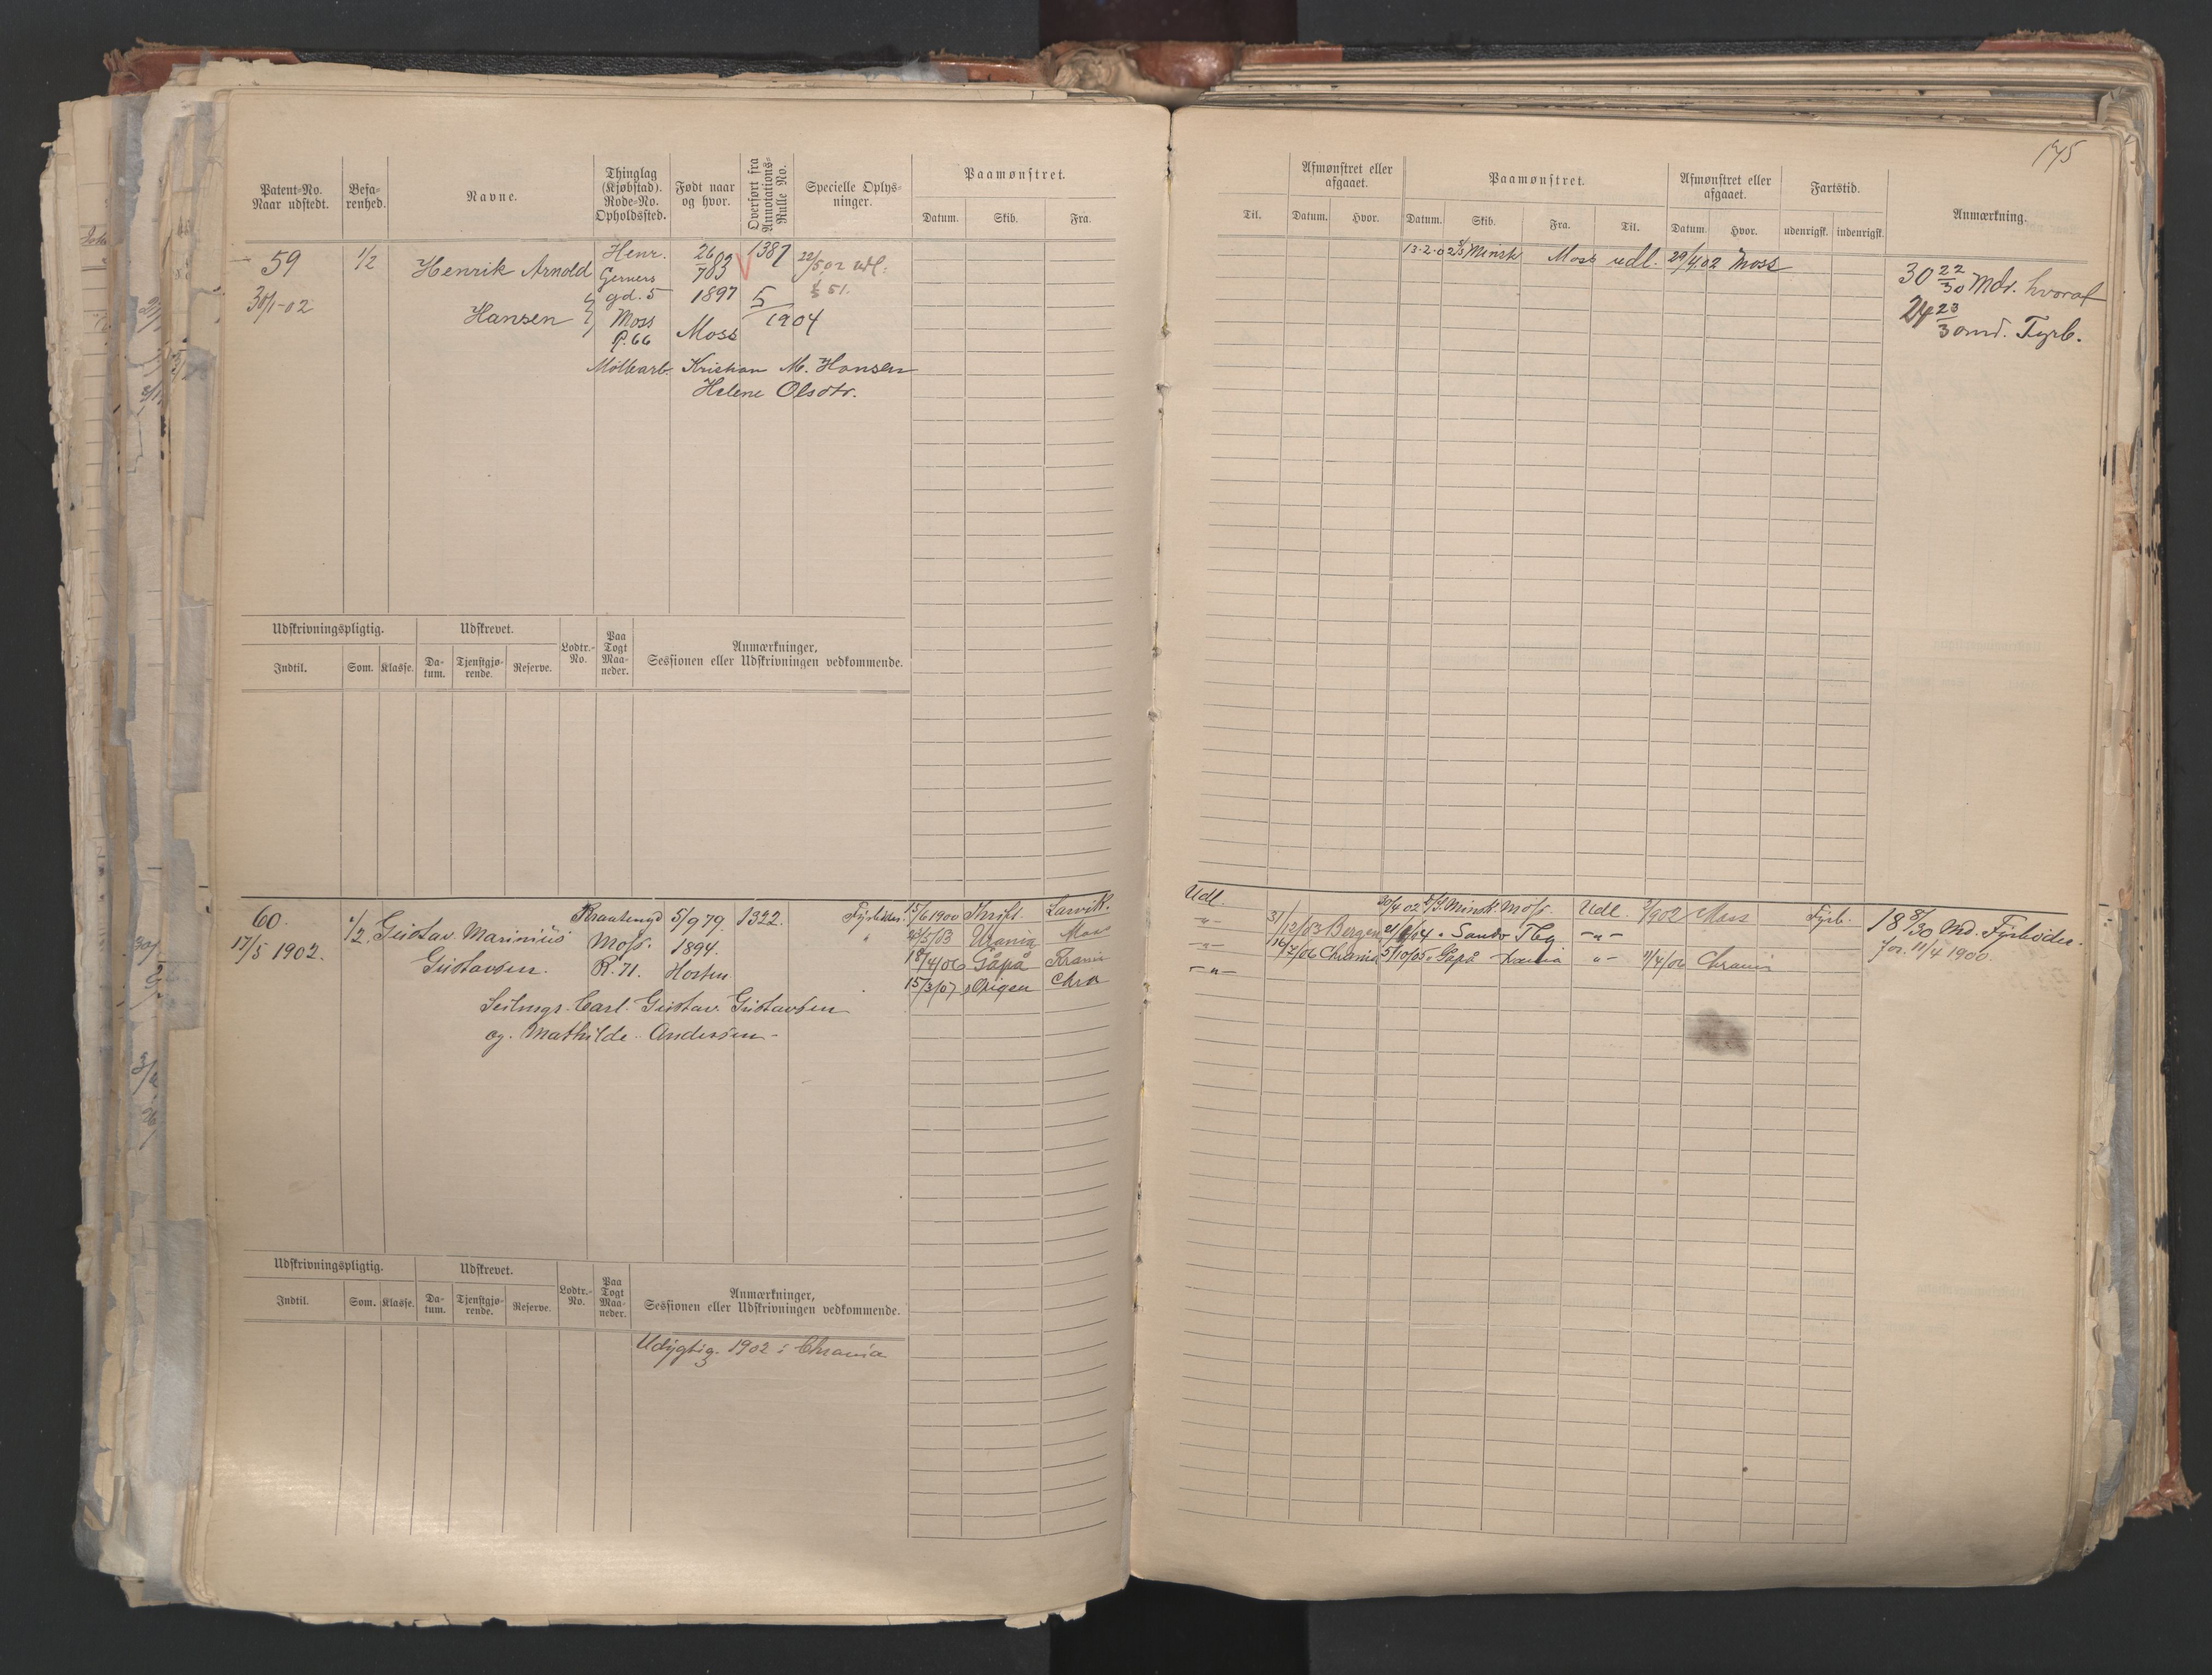 175
Patent-No.
Naar udstedt.
Befa-
renhed.
Navne.
Thinglag
(Kjøbstad).
Rode-No.
Opholdssted.
Født naar
og hvor.
Overført fra
Annotations-
Rulle No.
Specielle Oplys-
ninger.
Paamønstret.
Datum. Skib. Fra.
59
30/1-02
1/2
Henrik Arnold
Hansen
Henr.
Gerners
gd. 5
Moss
P. 66
1897
Moss
1387
5
1904
22/5 02 udl:
Møllearb. Kristian M. Hansen
Helene Olsdtr.
Udskrivningspligtig. Udskrevet.
Lodtr.-
No.
Paa
Togt
Maa-
neder.
Anmærkninger,
Sessionen eller Udskrivningen vedkommende.
Indtil. Som. Klasse. Da-
tum. Tjenstgjø-
rende. Reserve.
60.
17/5 1902.
1/2
Gustav Marinius
Gustavsen.
Moss.
R. 71.
5/9 79.
1894.
Horten
1322.
Fyrbøder.
15/6 1900 Thrift. Larvik.
Urania Moss
18/4/06 Gåpå Krania
15/3/07 Origen Chra
Carl. Gustav. Gustavsen
og. Mathilde. Andersen-
Udskrivningspligtig. Udskrevet.
Lodtr.-
No.
Paa
Togt
Maa-
neder.
Anmærkninger,
Sessionen eller Udskrivningen vedkommende.
Indtil. Som. Klasse. Da-
tum. Tjenstgjø-
rende. Reserve.
Udygtig. 1902 i Chrania
Til.
Afmønstret eller
afgaaet.
Datum. Hvor.
Paamønstret.
Datum. Skib. Fra. Til.
Afmønstret eller
afgaaet.
Datum. Hvor.
Fartstid.
udenrigsk. indenrigsk.
Anmærkning.
13-2-02 Minsk Moss udl. 29/4.02 Moss
30 22/30 Mdr. hvoraf
24 23/30 md. Fyrb.
Udl. 20/4 02 Minsk. Moss. Udl. 1902 Moss Fyrb.
-"- 31/12/03 Bergen Sando Tbg -"-
-"- 16/7/06 Chrania 5/10/05 Gåpå Krania -"- 11/4/06 Chrania
-"-
18 8/30 Md. Fyrbøder.
for. 11/4 1900.